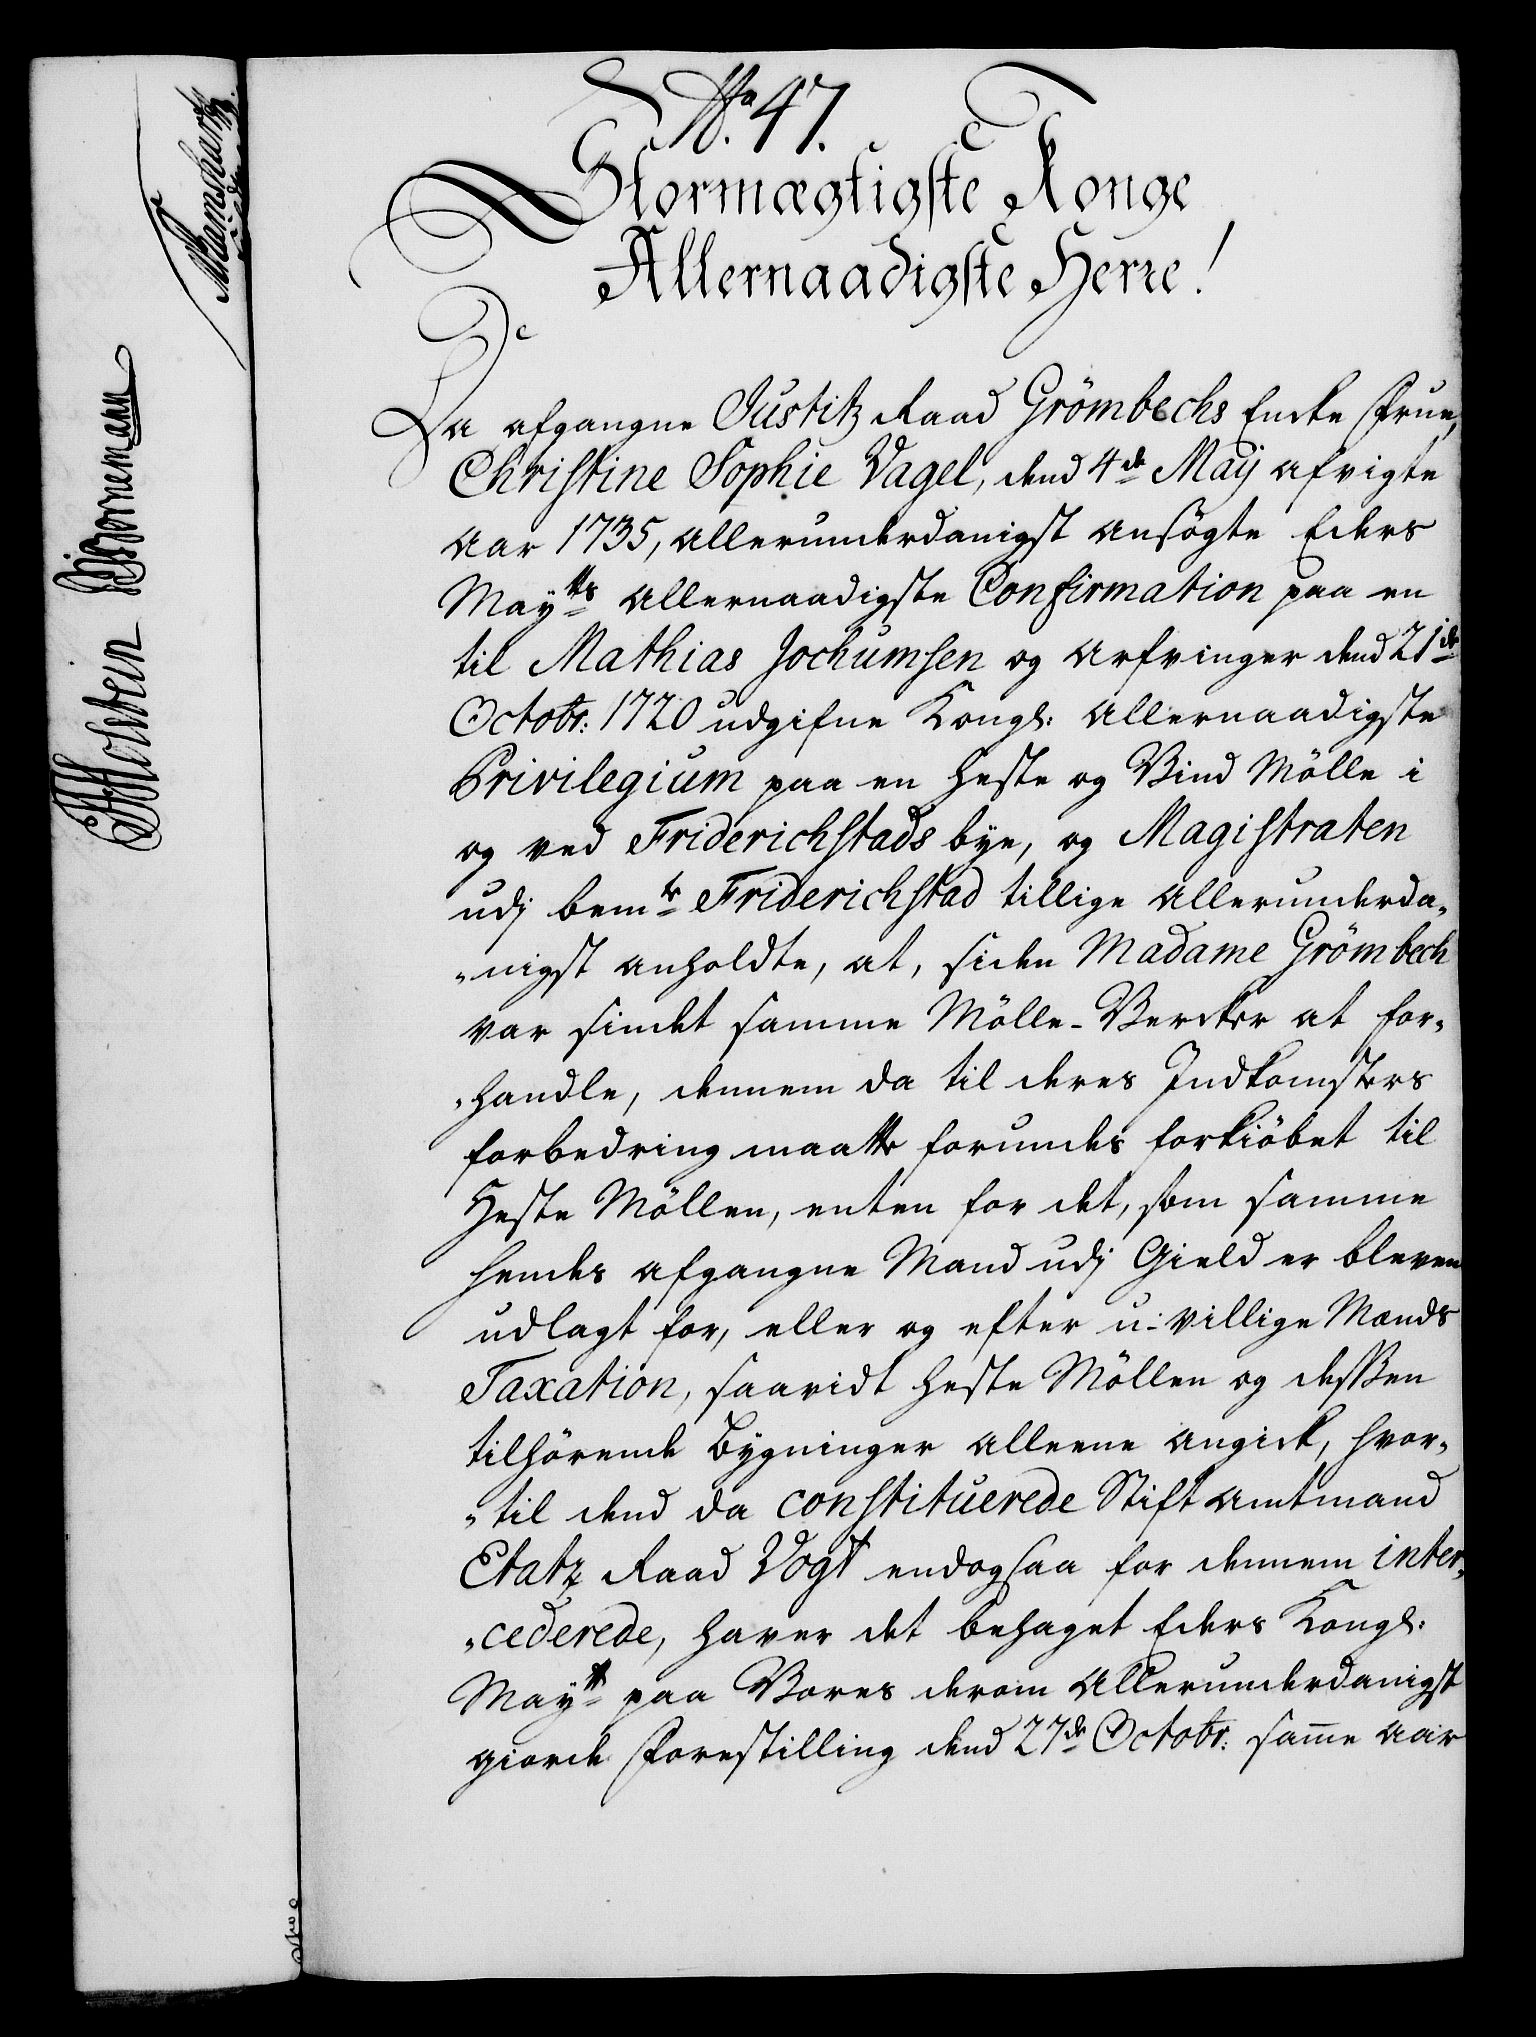 No. 47.
Stormægtigste Konge
Allernaadigste Herre!
Da afgangne Justitz Raad Grömbechs Encke Frue,
Christine Sophie Vagel, dend 4de Maÿ afvigte
Aar 1735, allerunderdanigst ansögte Eders
Mayts allernaadigste Confirmation paa en
til Mathias Jochumsen og Arfvinger dend 21de
Octobr: 1720 udgifne Kongl: Allernaadigste
Privilegium paa en Heste og Vind Mölle i
og ved Friderichstads bye, og Magistraten
udj bemte Friderichstad tillige Allerunderda-
-nigst anholdte, at, siden Madame Grömbech
var sindet samme Mölle-Vercker at for-
-handle, dennem da til deres Indkomsters
forbedring maatte forundes forkiöbet til
Heste Möllen, enten for det, som samme
hendes afgangne Mand udj Gield er bleven
udlagt for, eller og efter u-villige Mænds
Taxation, saavidt Heste Möllen og desßen
tilhörende Bygninger alleene angick, hvor-
-til dend da constituerede Stift Amtmand
Etatz Raad Vogt endogsaa for dennem inter-
-cederede, haver det behaget Eders Kongl:
Mayt paa Vores derom Allerunderdanigst
giorde Forestilling dend 27de Octobr: sam̄e Aar
Holstein Bornemann